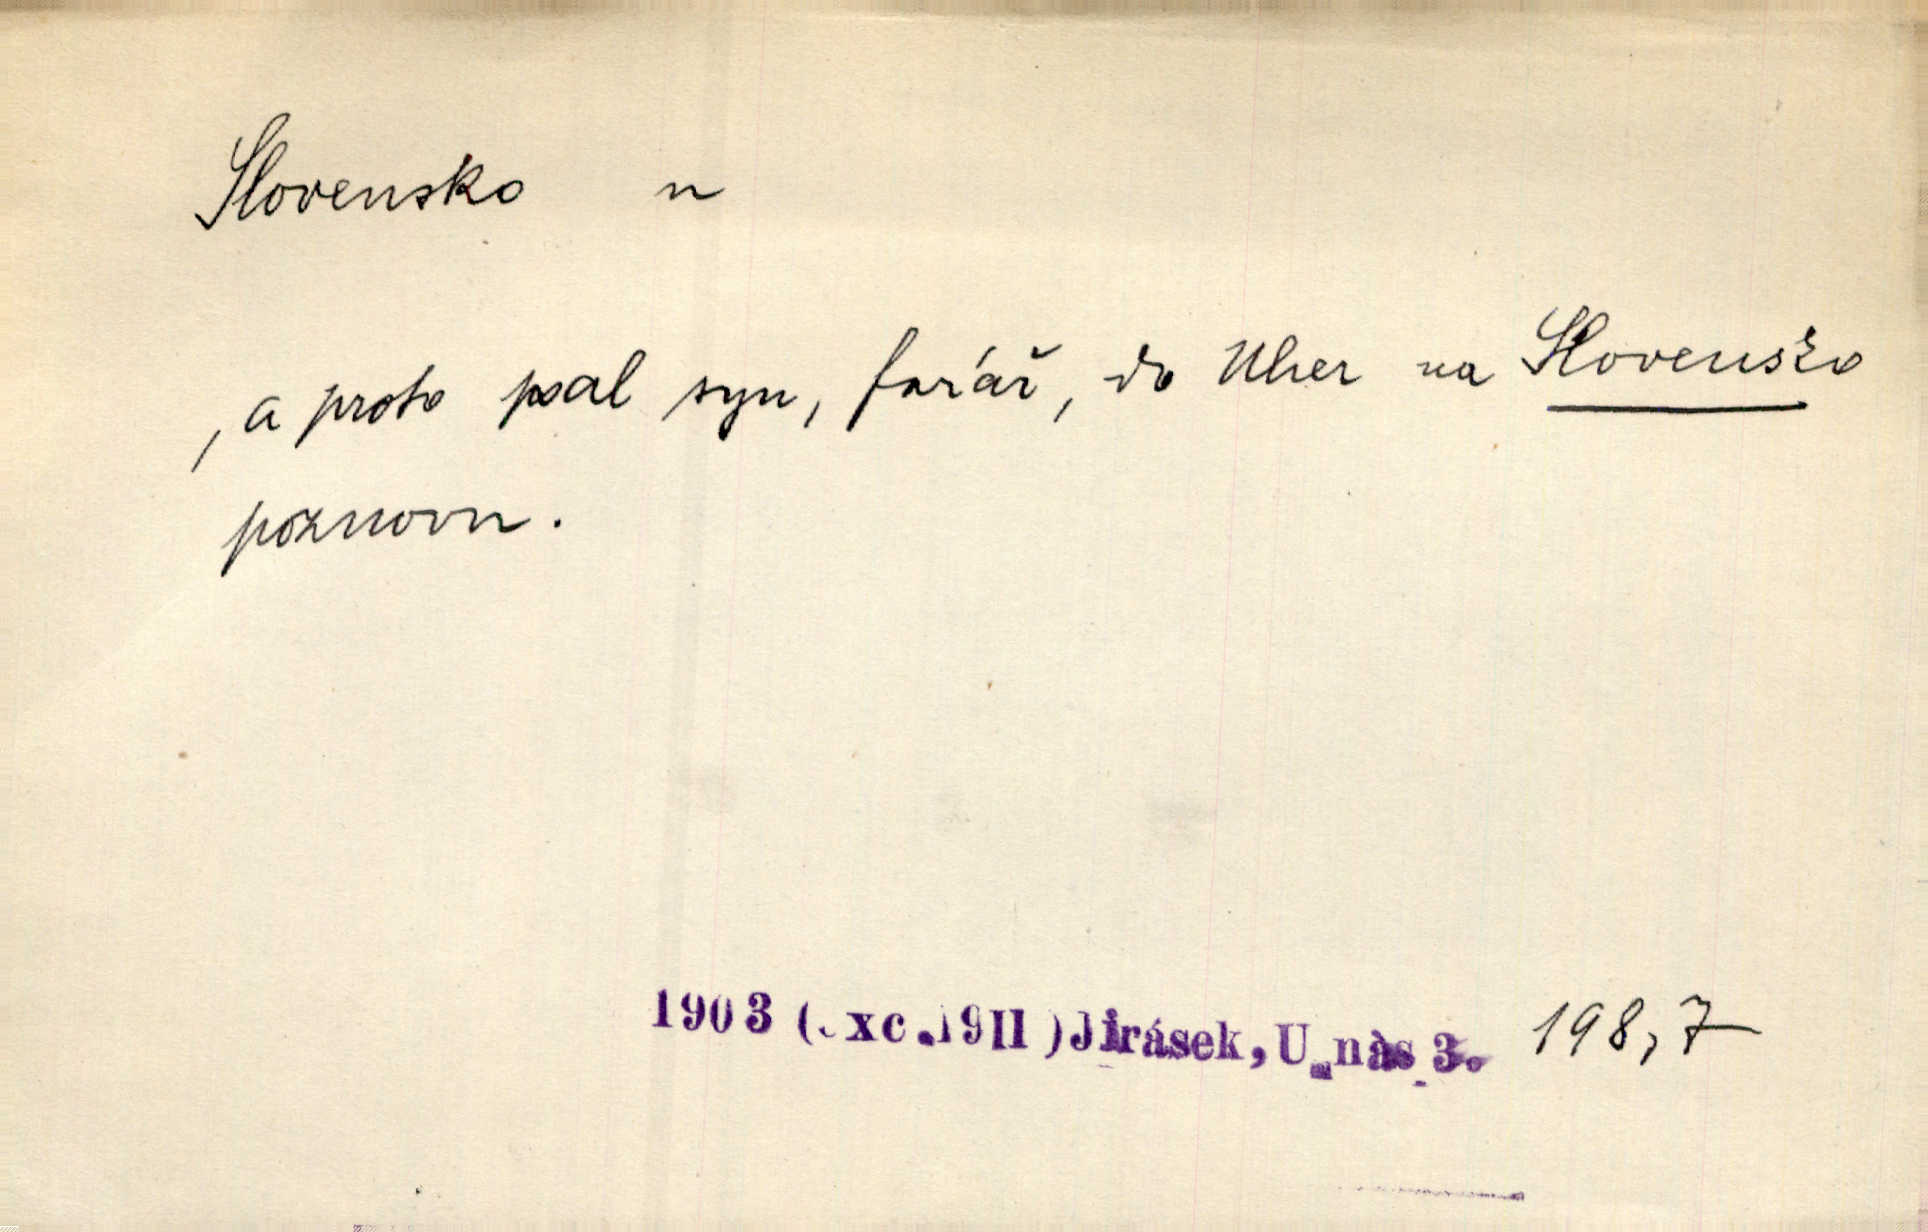 Slovensko n
, a proto psal syn, farář, do Uher na Slovensko
poznovu.
1903 (exc.1911) Jirásek, U nás 3. 198,7